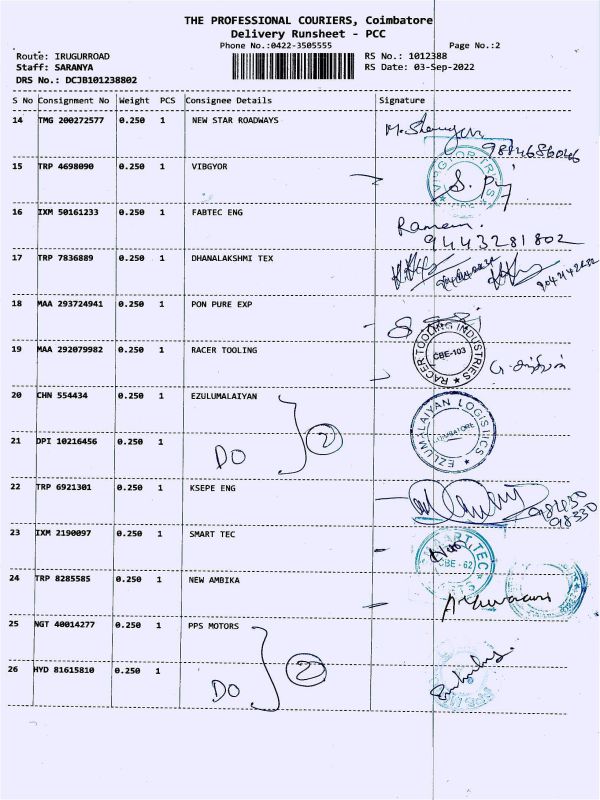 THE PROFESSIONAL COURIERS, Coimbatore
Delivery Runsheet - PCC
Phone No.:0422-3505555 Page No.:2
Route: IRUGURROAD RS No.: 1012388
Staff: SARANYA RS Date: 03-Sep-2022
DRS No.: DCJB101238802
S No Consignment No Weight PCS Consignee Details Signature
14 TMG 200272577 0.250 1 NEW STAR ROADWAYS
9884686046
15 TRP 4698090 0.250 1 VIBGYOR
VIBGYOR TRUST
S.
16 IXM 50161233 0.250 1 FABTEC ENG
Raman.
9443281802
17 TRP 7836889 0.250 1 DHANALAKSHMI TEX
18 MAA 293724941 0.250 1 PON PURE EXP
19 MAA 292079982 0.250 1 RACER TOOLING
RACER TOOLING INDUSTRIES
CBE-103
20 CHN 554434 0.250 1 EZULUMALAIYAN
EZLUMALAIYAN LOGISTICS
COIMBATORE
21 DPI 10216456 0.250 1
DO 2
22 TRP 6921301 0.250 1 KSEPE ENG
98430
98330
23 IXM 2190097 0.250 1 SMART TEC
SMART TEC
CBE - 62
24 TRP 8285585 0.250 1 NEW AMBIKA
25 NGT 40014277 0.250 1 PPS MOTORS
26 HYD 81615810 0.250 1
DO 2